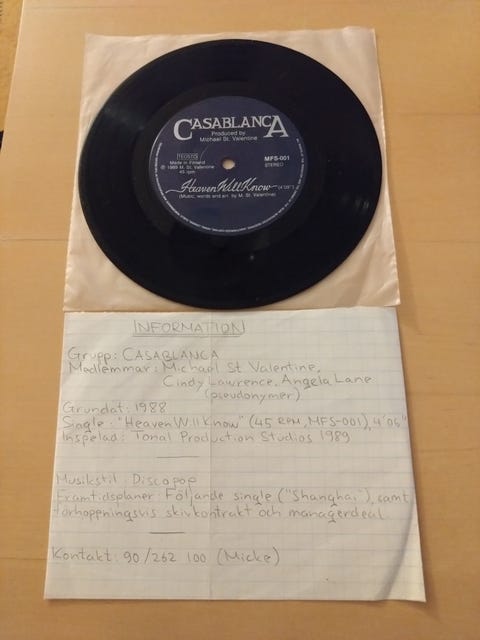 CASABLANCA
Produced by
Michael St. Valentine
TEOSTO
Made in Finland
℗ 1989 M. St. Valentine
45 rpm
MFS-001
STEREO
Heaven Will Know (4'05")
(Music, words and arr. by M. St. Valentine)
INFORMATION
Grupp: CASABLANCA
Medlemmar: Michael St Valentine,
Cindy Lawrence, Angela Lane
(pseudonymer)
Grundat: 1988
Single: "Heaven Will Know" (45 RPM, MFS-001), 4'05"
Inspelad: Tonal Production Studios 1989
Musikstil: Discopop
Framtidsplaner: Följande single ("Shanghai"), samt
förhoppningsvis skivkontrakt och managerdeal
Kontakt: 90/262 100 (Micke)